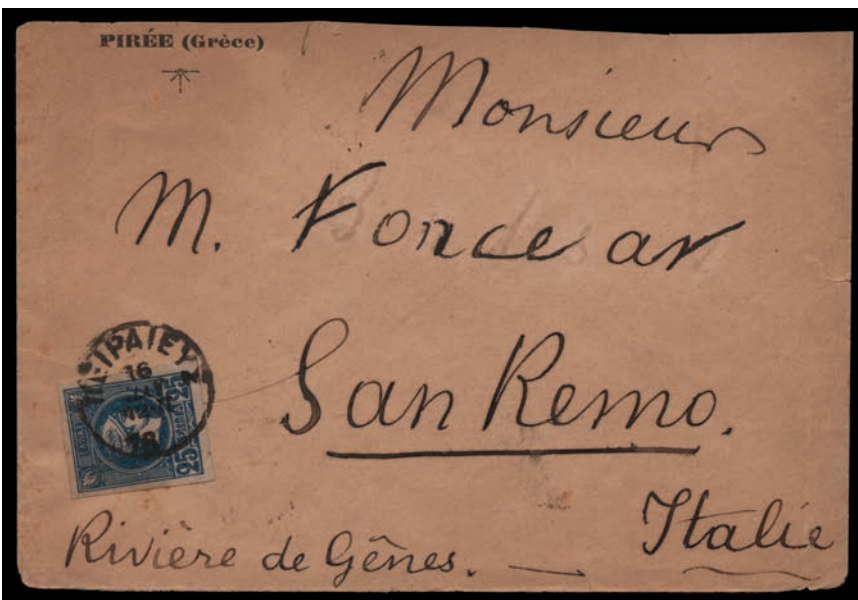 PIRÉE (Grèce)
Monsieur
M. Fonce ar
San Remo.
Italie
Rivière de Gênes. —
ΠΕΙΡΑΙΕΥΣ
16
25
25